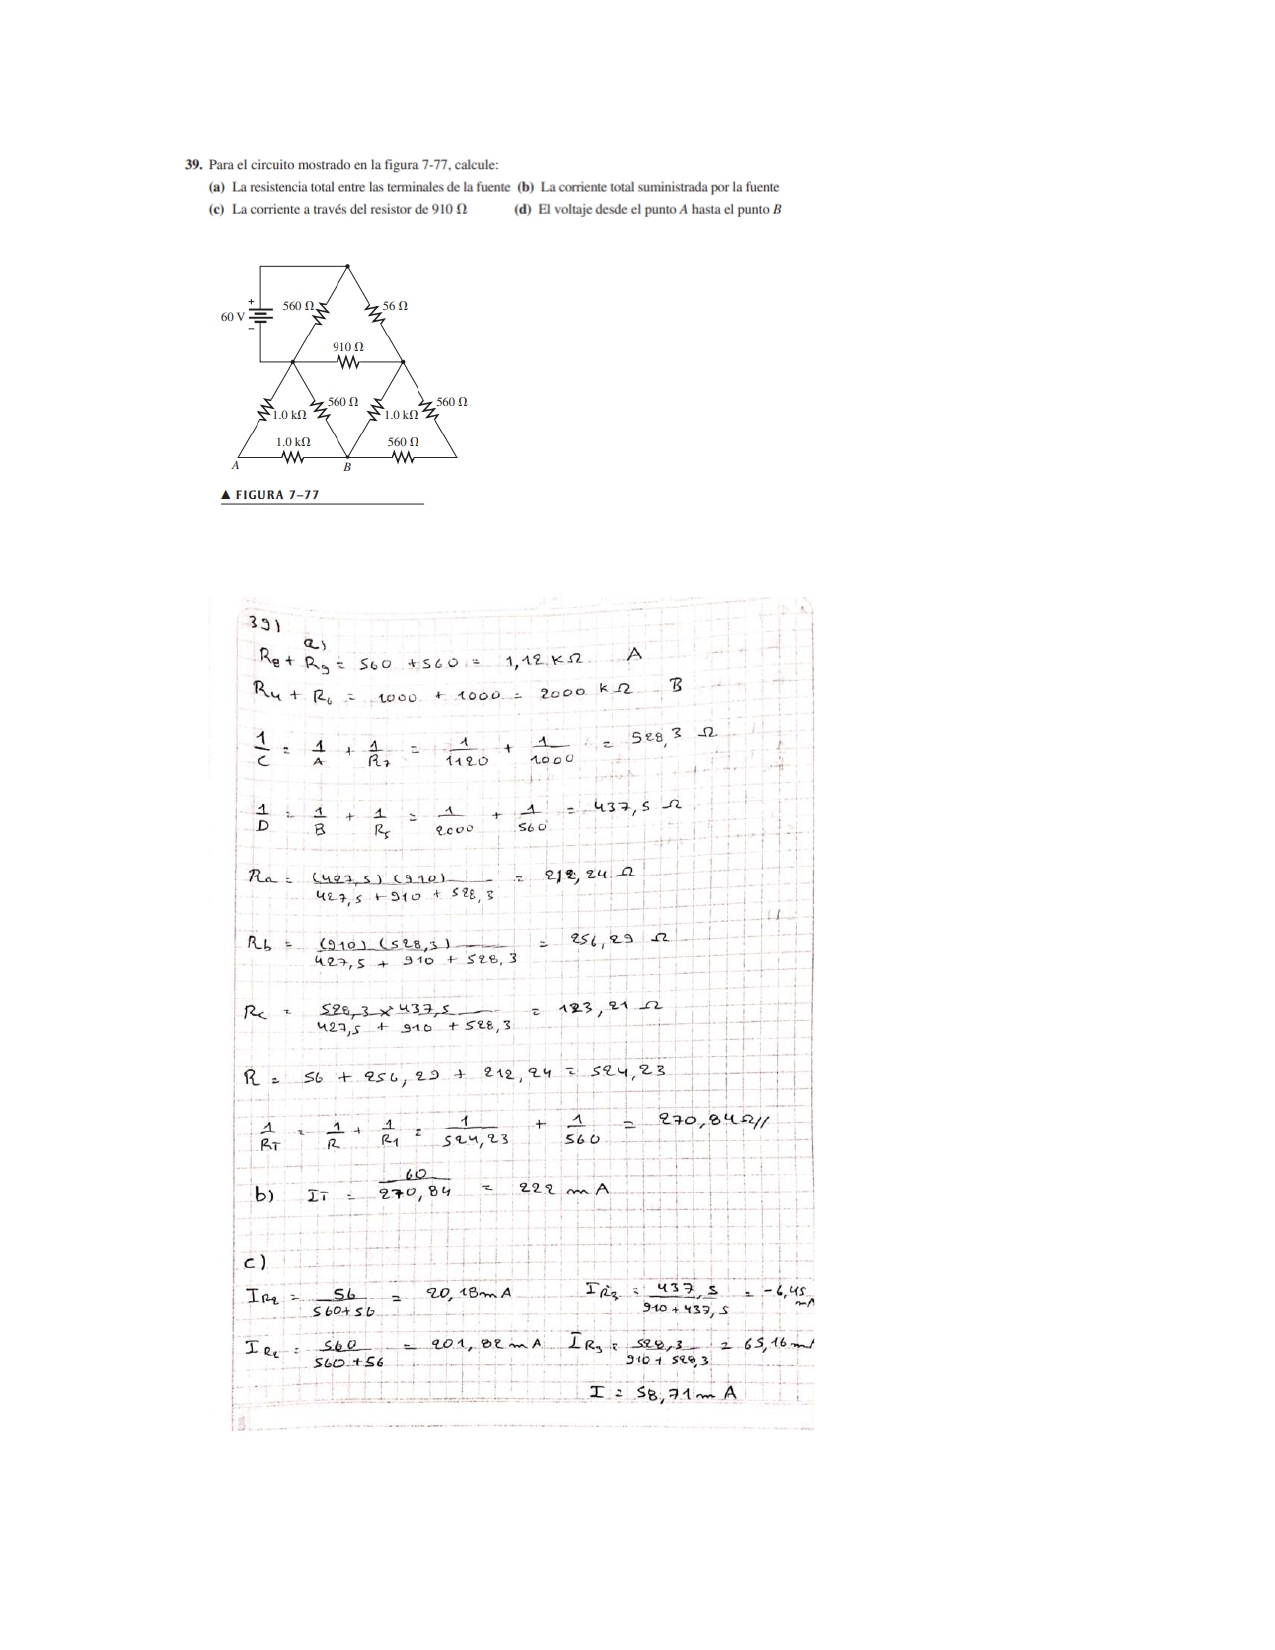 39. Para el circuito mostrado en la figura 7-77, calcule:
(a) La resistencia total entre las terminales de la fuente (b) La corriente total suministrada por la fuente
(c) La corriente a través del resistor de 910 Ω (d) El voltaje desde el punto A hasta el punto B
+
560 Ω 56 Ω
60 V
−
910 Ω
560 Ω 560 Ω
1.0 kΩ 1.0 kΩ
1.0 kΩ 560 Ω
A B
▲ FIGURA 7–77
39)
a)
R8 + R9 = 560 + 560 = 1,12 KΩ A
R4 + R6 = 1000 + 1000 = 2000 KΩ B
1/C = 1/A + 1/R7 = 1/1120 + 1/1000 = 528,3 Ω
1/D = 1/B + 1/R5 = 1/2000 + 1/560 = 437,5 Ω
Ra = (427,5)(910) / 427,5 + 910 + 528,3 = 212,24 Ω
Rb = (910)(528,3) / 427,5 + 910 + 528,3 = 256,29 Ω
Rc = 528,3 x 437,5 / 427,5 + 910 + 528,3 = 123,21 Ω
R = 56 + 256,29 + 212,24 = 524,23
1/RT = 1/R + 1/R1 = 1/524,23 + 1/560 = 270,84Ω//
b) IT = 60/270,84 = 222 mA
c)
IR2 = 56/560+56 = 20,18mA IR3 = 437,5/910+437,5 = -6,45 mA
IR1 = 560/560+56 = 201,82 mA IR3 = 528,3/910+528,3 = 65,16 m
I = 58,71 mA